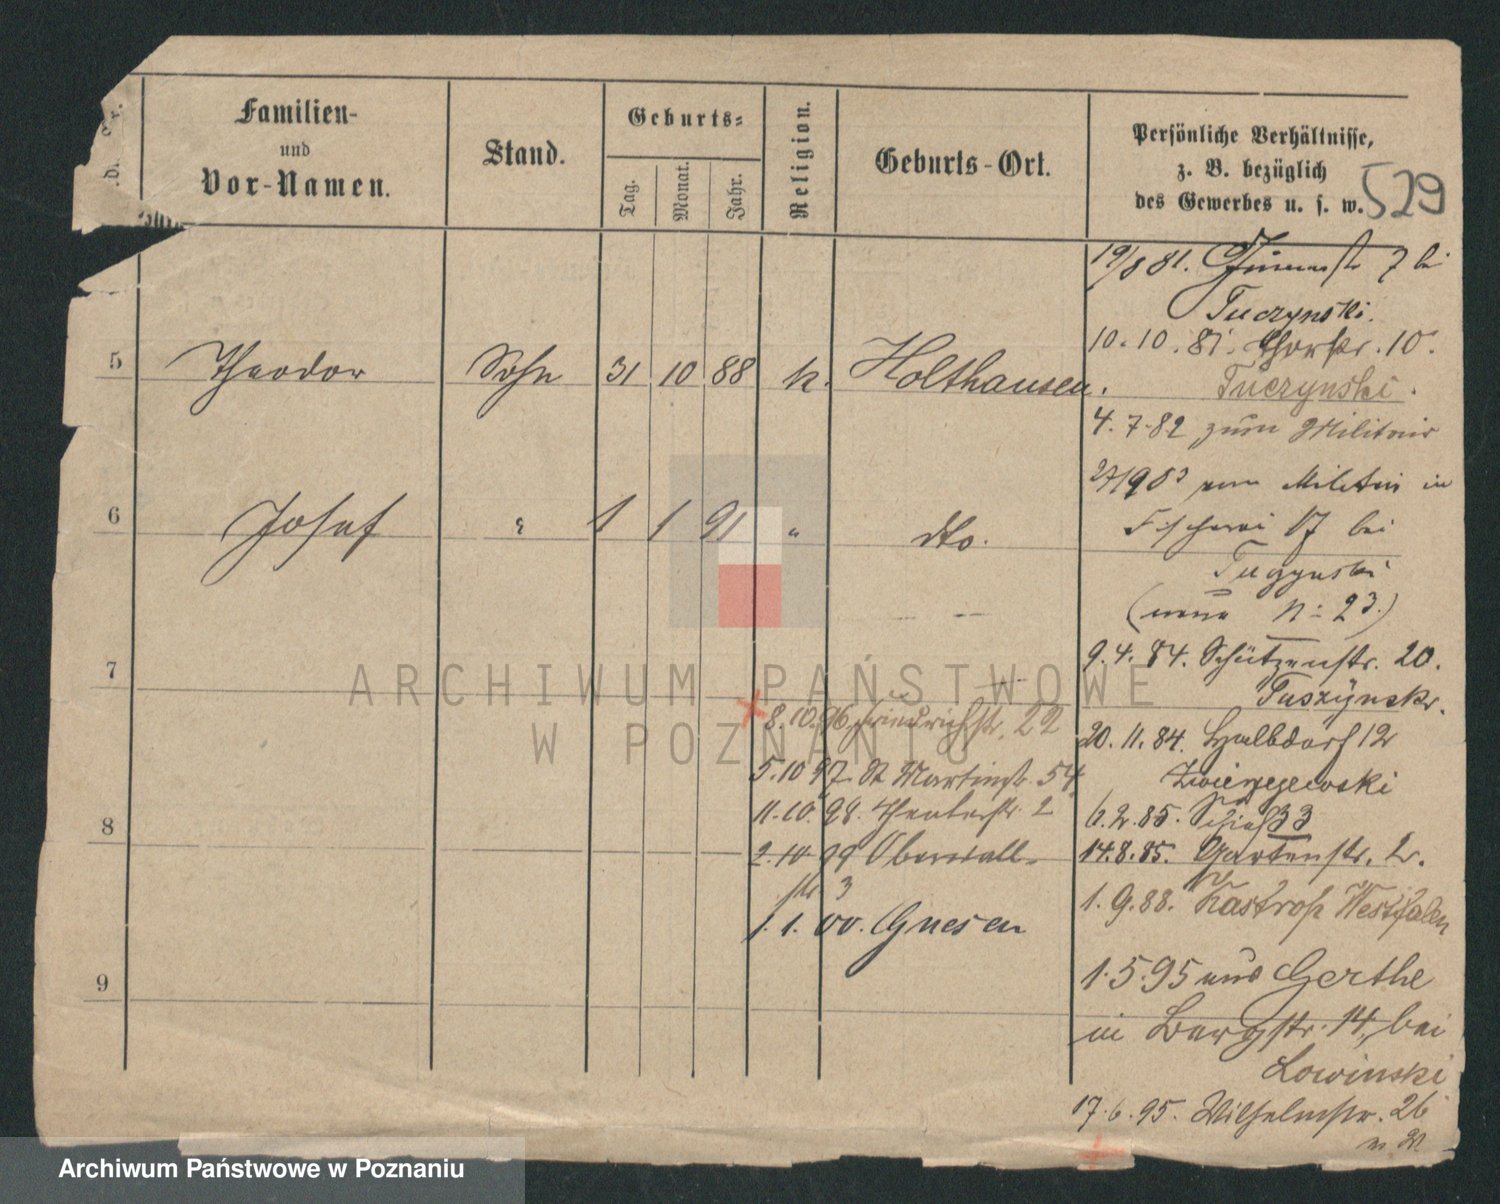 Familien-
und
Vor-Namen.
Stand.
Geburts-
Tag.
Monat.
Jahr.
Religion.
Geburts-Ort.
Persönliche Verhältnisse,
z. B. bezüglich
des Gewerbes u. s. w.
529
19/8 81. 7 bei
Tuczynski.
10.10.81. 10.
Tuczynski.
5 Theodor Sohn 31 10 88 k. Holthausen.
4.7.82 zum Militair
vom Militair in
Fischerei 17 bei
6 Josef " 1 1 91 " dto.
Tuczynski
(neue N: 23.)
9.4.84. Schützenstr. 20.
7
Tuszynski.
8.10.96 Friedrichstr. 22
20.11.84. Halbdorf 12
5.10 97 St Martinstr. 54
Zwierzejewski
11.10.98. Theaterstr. 2
6.2.85. Schieß 33
8
2.10 99 Oberwall-
str 3
14.8.85. Gartenstr. 2.
1.9.88. Kastrop Westfalen
1.1.00. Gnesen
1.5.95 aus Gerthe
9
in Bergstr. 14, bei
Lowinski
17.6.95. Wilhelmstr. 26
ARCHIWUM PAŃSTWOWE
W POZNANIU
Archiwum Państwowe w Poznaniu